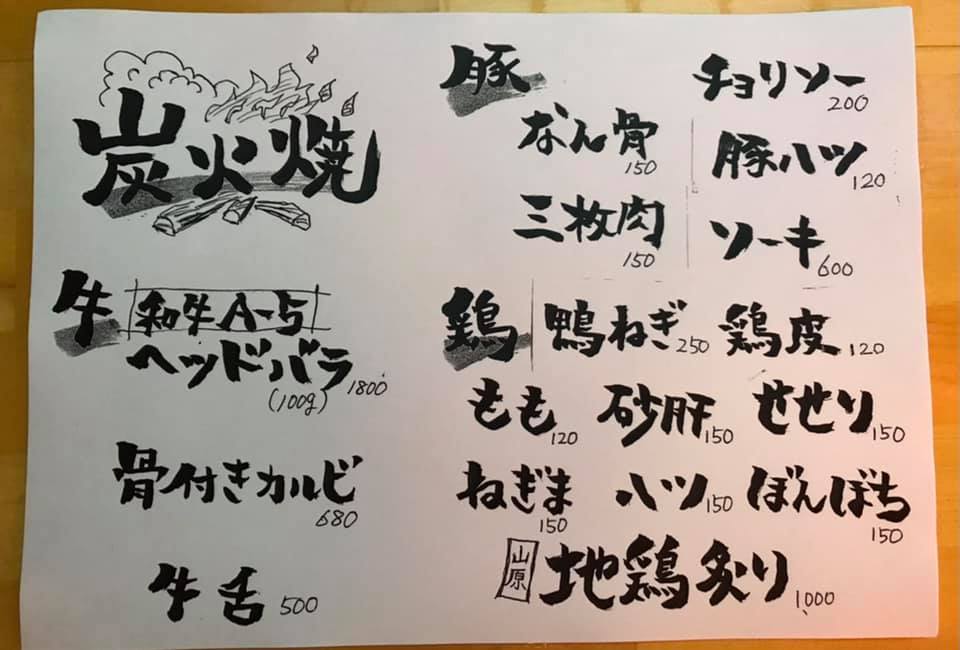 炭火焼
牛
和牛A-5
ヘッドバラ
(100g) 1800
骨付きカルビ
680
牛舌 500
豚
なん骨
150
三枚肉
150
チョリソー
200
豚ハツ
120
ソーキ
600
鶏
鴨ねぎ 250
鶏皮 120
もも 120
砂肝 150
せせり 150
ねぎま
150
ハツ 150
ぼんぼち
150
山原
地鶏炙り 1,000